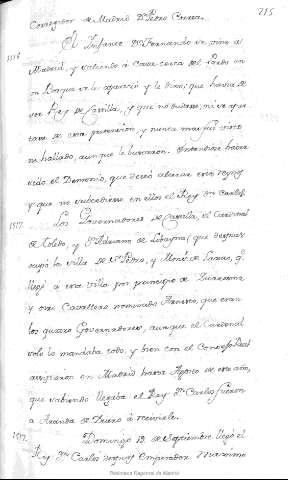 215
Corregidor de Madrid Dn Pedro Correa.
1516
El Infante Dn Fernando se vino a
Madrid, y saliendo a Caza cerca del Pardo en
un Bosque se le aparecio y le dixo: que havia de
ser Rey de Castilla, y que no dudase, ni se apar
tase de esta pretension, y nunca mas fue visto
ni hallado, aunque le buscaron. Entendiose haber
sido el Demonio, que deseó alterar este reyno
y que no subcediese en ellos el Rey Dn Carlos.
1517.
Los Governadores de Castilla, el Cardenal
de Toledo, y Adriano de Lobayna; que despues
ocupó la silla de Sn Pedro, y Monsr. de Laxao, qe
llegó a esta villa por principio de
y otro Cavallero nominado que eran
los quatro Governadores, aunque el Cardenal
solo lo mandaba todo, y bien con el Consejo Real
asistieron en Madrid hasta Agosto de este año,
que sabiendo llegaba el Rey Dn Carlos fueron
a Aranda de Duero á recivirle.
1517.
Domingo 19 de Septiembre llegó el
Rey Dn Carlos Emperador
Biblioteca Regional de Madrid